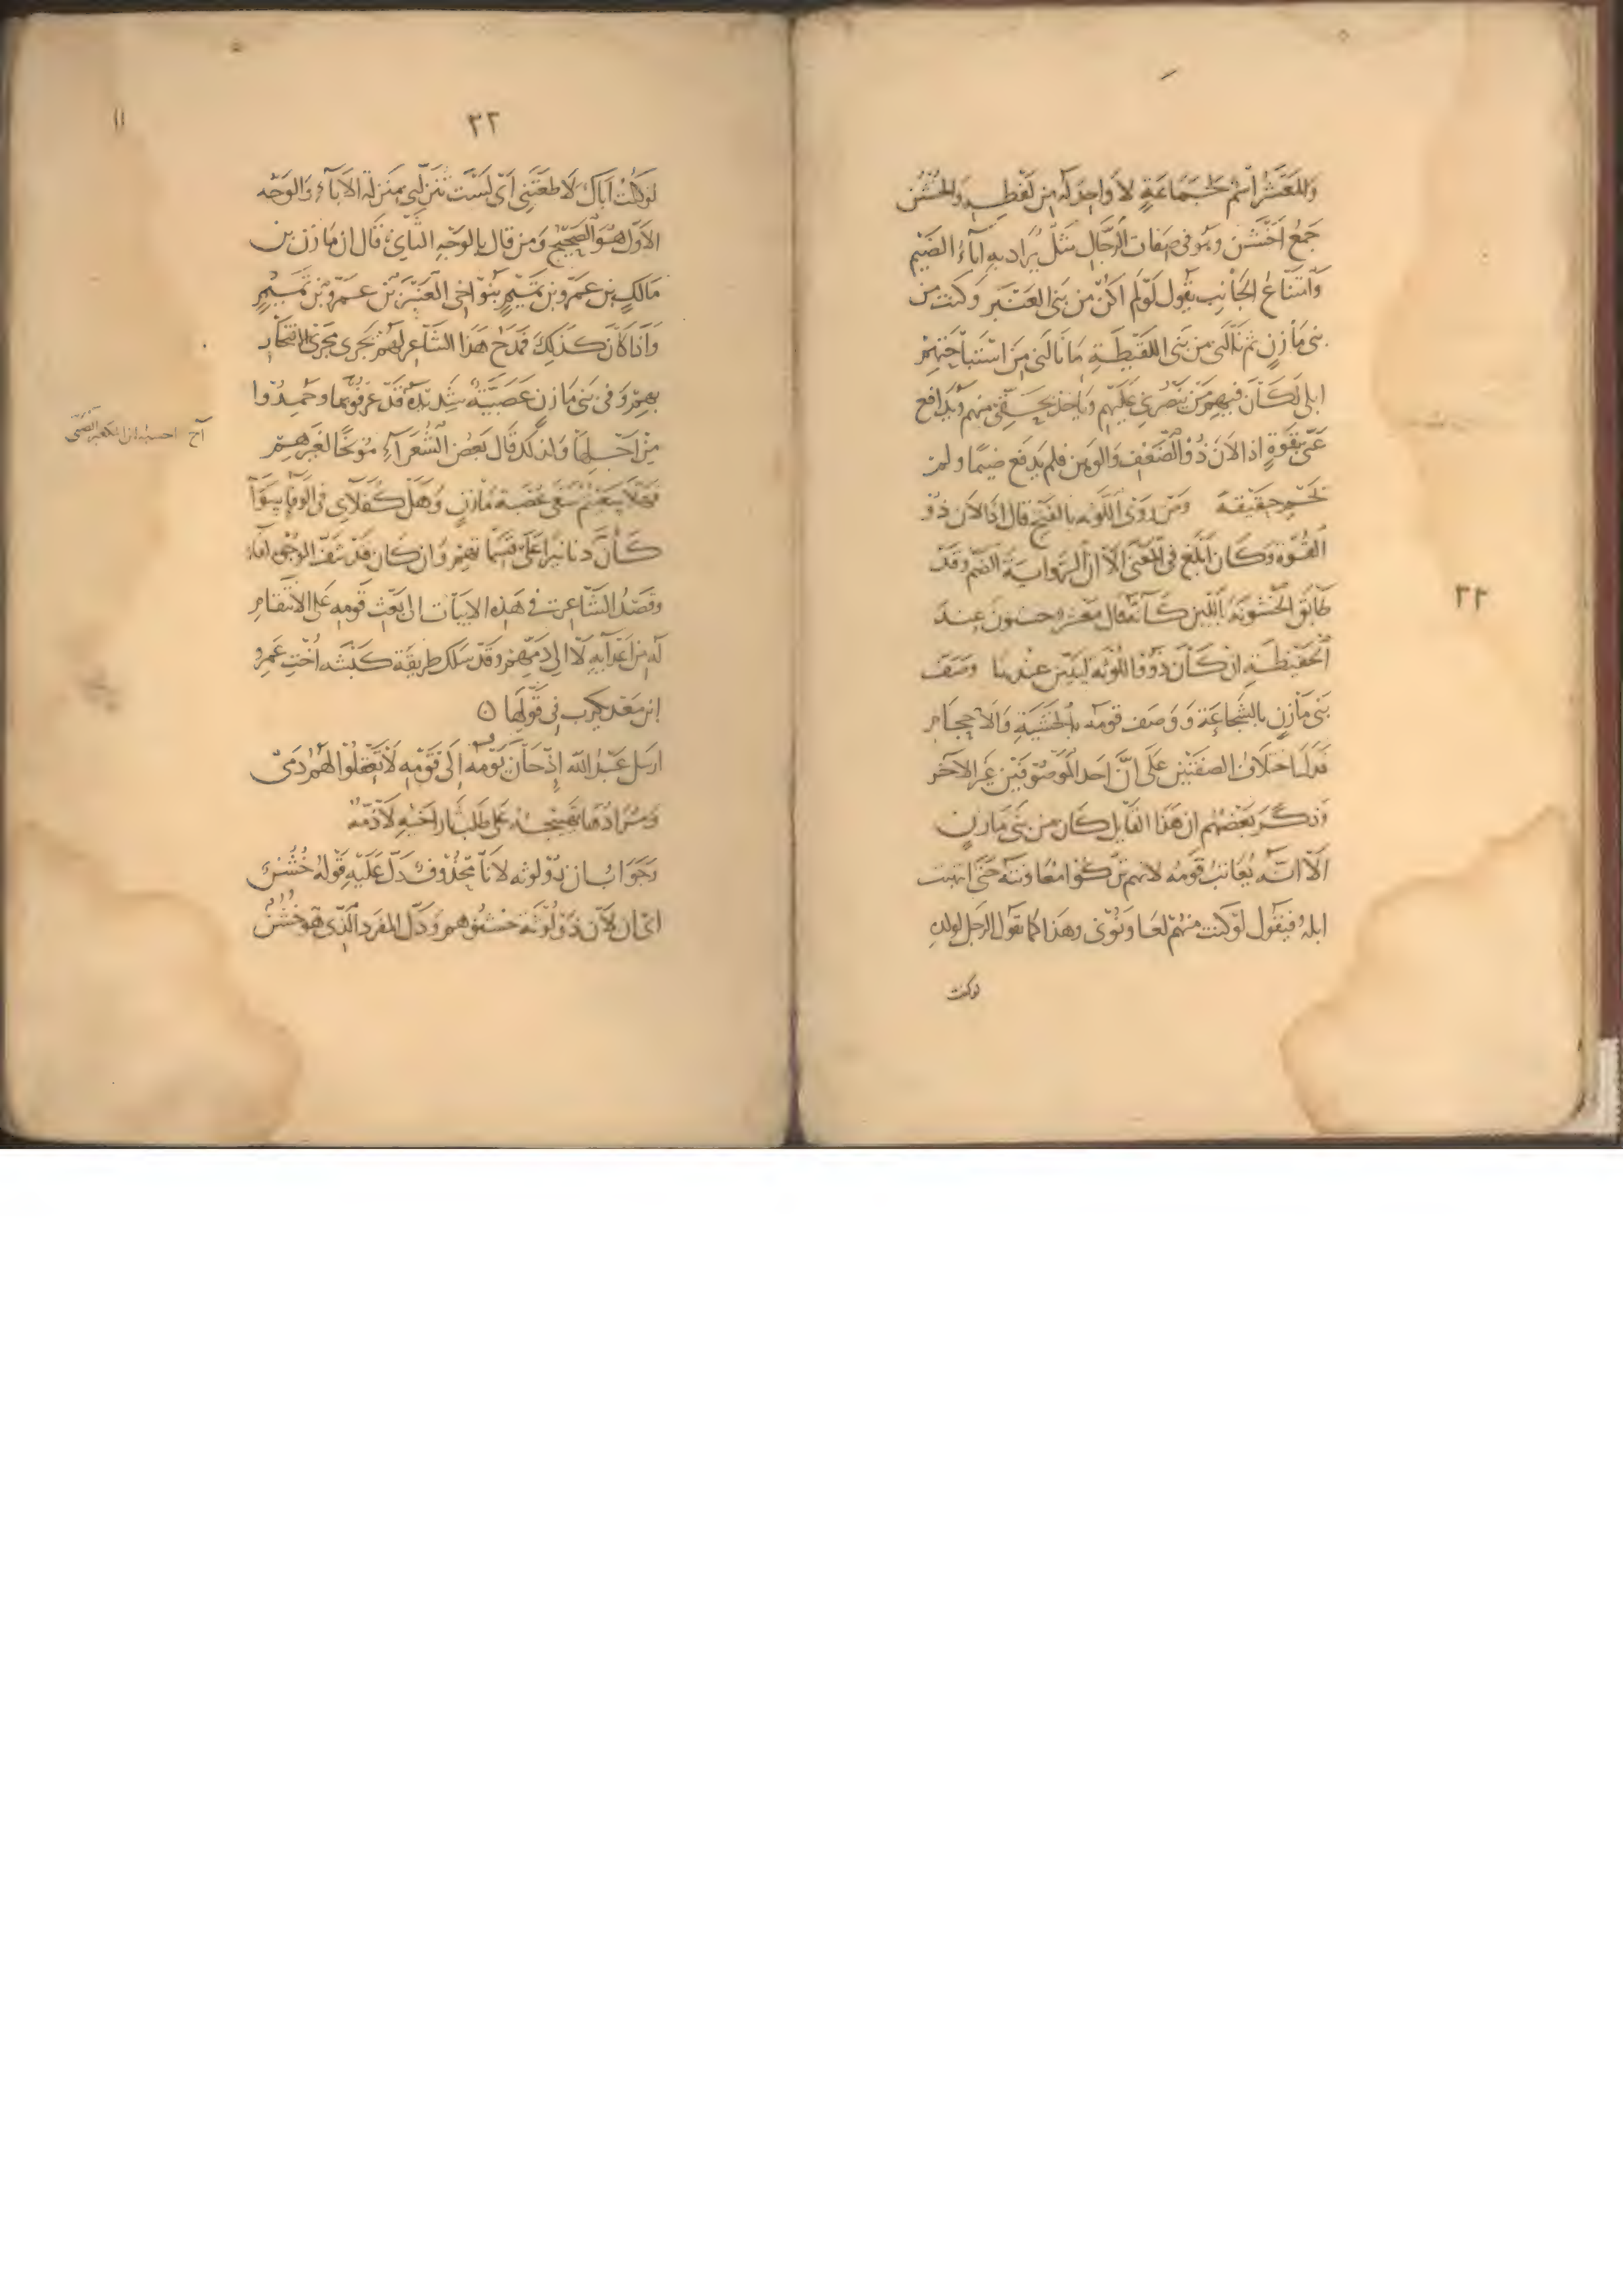 والمعشر اسم لجماعة لا واحد له من لفظه والخشن
جمع اخشن وهو فى صفات الرجال مثل يراد به اباء الضيم
وامتناع الجانب يقول لو لم اكن من بنى العنبر وكنت من
بنى مازن ثم نالنى من بنى اللقيطة ما نالنى من استباحتهم
ابلى لكان فيهم من ينصرنى عليهم وياخذ بحقى منهم ويدافع
عنى بقوة اذا لان ذو الضعف والوهن فلم يدفع ضيما ولم
يحم حقيقة ومن روى اللوثة بالفتح قال اذا لان ذو
القوة وكان ابلغ فى المعنى الا ان الرواية الضم وقد
طابق الخشونة باللين كانه قال معشر خشنون عند
الحفيظة ان كان ذو اللوثة لينين عندها وصف
بنى مازن بالشجاعة ووصف قومه بالخشية والاحجام
فدل اختلاف الصفتين على ان احد الموصوفين غير الآخر
وذكر بعضهم ان هذا القايل كان من بنى مازن
الا انه يعاتب قومه لانهم تركوا معاونته حتى انتهبت
ابله فيقول لو كنت منهم لعاونونى وهذا كما تقول الرجل لولده
لوكنت
٢٢
٢٢
١١
لو كنت اباك لاطعتنى اى لست تنزلنى بمنزلة الآباء والوجه
الاول هو الصحيح ومن قال بالوجه الثانى قال ان مازن بن
مالك بن عمرو بن تميم بنو اخى العنبر بن عمرو بن تميم
واذا كان كذلك فمدح هذا الشاعر لهم يجرى مجرى الافتخار
بهم وفى بنى مازن عصبية شديدة قد عرفوا بها وحمدوا
من اجلها ولذلك قال بعض الشعراء موبخا لغيرهم
فهلا سعيتم سعى عصبة مازن وهل كفلاى فى الوفا سوا
كان دنانيرا على قسماتهم وان كان قد شف الوجوه لقاء
وقصد الشاعر فى هذه الابيات الى بعث قومه على الانتقام
له من اعدايه لا الى ذمهم وقد سلك طريقة كبشه اخت عمرو
ابن معد يكرب فى قولها
ارسل عبد الله اذ حان يومه الى قومه لا تعقلوا لهم دمى
ومرادها تهييجه على طلب ثار اخيه لا ذمه
وجواب ان ذو لوثه لانا محذوف دل عليه قوله خشن
اى ان لان ذو لوثة خشنوا هم ودل المفرد الذى هو خشن